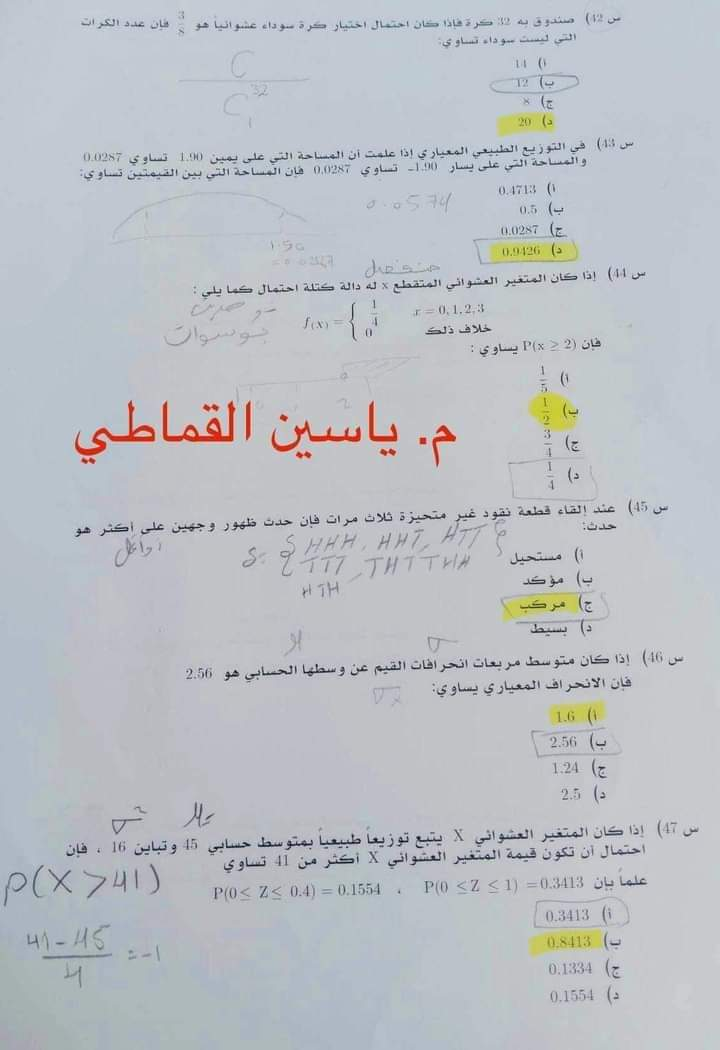 س 42) صندوق به 32 كرة فإذا كان احتمال اختيار كرة سوداء عشوائياً هو 3/8 فإن عدد الكرات
التي ليست سوداء تساوي:
أ) 14
ب) 12
ج) 8
د) 20
C
C 32 1
س 43) في التوزيع الطبيعي المعياري إذا علمت أن المساحة التي على يمين 1.90 تساوي 0.0287
والمساحة التي على يسار 1.90- تساوي 0.0287 فإن المساحة التي بين القيمتين تساوي:
أ) 0.4713
ب) 0.5
ج) 0.0287
د) 0.9426
0.0574
1.90
منفصل
س 44) إذا كان المتغير العشوائي المتقطع x له دالة كتلة احتمال كما يلي :
f(x) = { 1/4 x = 0, 1, 2, 3
0 خلاف ذلك
فإن P(x ≥ 2) يساوي :
أ) 1/5
ب) 1/2
ج) 3/4
د) 1/4
م. ياسين القماطي
س 45) عند إلقاء قطعة نقود غير متحيزة ثلاث مرات فإن حدث ظهور وجهين على أكثر هو
حدث:
أ) مستحيل
ب) مؤكد
ج) مركب
د) بسيط
S= { HHH, HHT, HTT }
TTT, THT THH
HTH
س 46) إذا كان متوسط مربعات انحرافات القيم عن وسطها الحسابي هو 2.56
فإن الانحراف المعياري يساوي:
أ) 1.6
ب) 2.56
ج) 1.24
د) 2.5
س 47) إذا كان المتغير العشوائي X يتبع توزيعاً طبيعياً بمتوسط حسابي 45 وتباين 16 ، فإن
احتمال أن تكون قيمة المتغير العشوائي X أكثر من 41 تساوي
علماً بإن P(0 ≤ Z ≤ 1) = 0.3413 ، P(0 ≤ Z ≤ 0.4) = 0.1554
أ) 0.3413
ب) 0.8413
ج) 0.1334
د) 0.1554
P(X > 41)
41 - 45 / 4 = -1